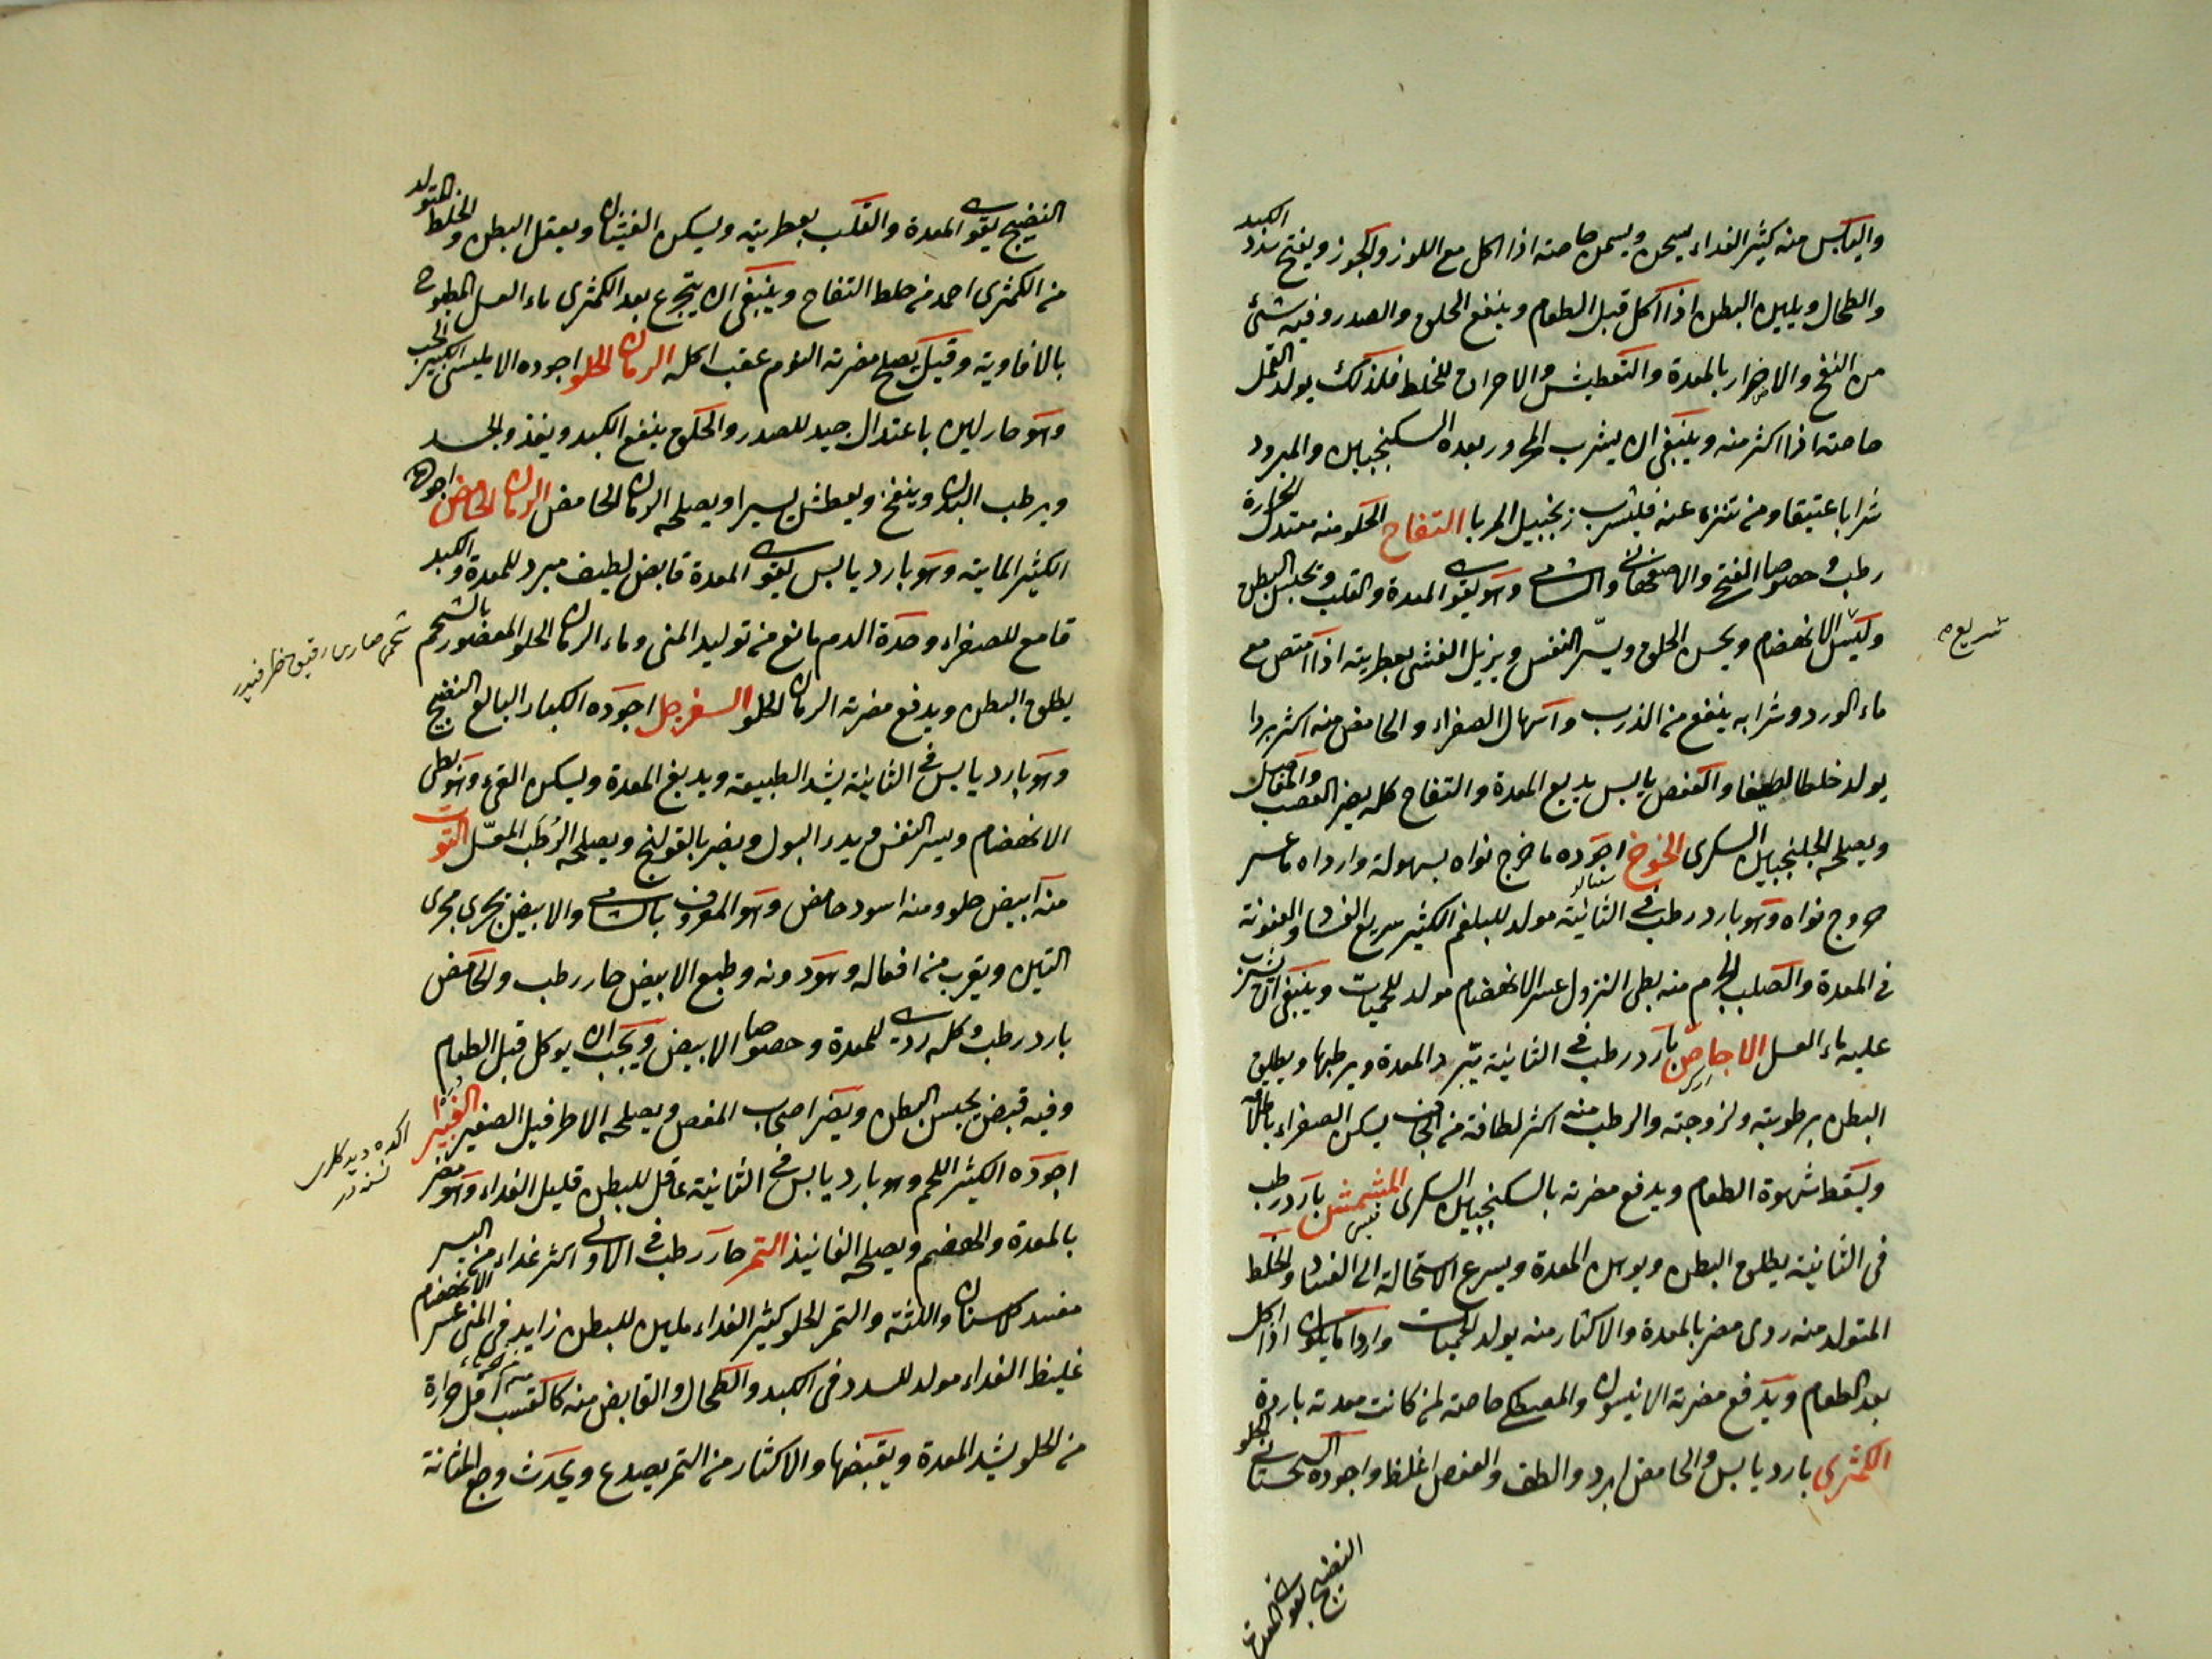 واليابس منه كثير الغداء يسخن ويسمن خاصة اذا اكل مع اللوز والجوز ويفتح سدد الكبد
والطحال ويلين البطن اذا اكل قبل الطعام وينفع الحلق والصدر وفيه شئ
من النفخ والاضرار بالمعدة والتعطيش والاحراق للخلط فلذلك يولد القمل
خاصة اذا اكثر منه وينبغي ان يشرب المحرور بعده السكنجبين والمبرود
شرابا عتيقا ومن تنزه عنه فليشرب زنجبيل المربا التفاح الحلو منه معتدل الحرارة
رطب وخصوصا الفتح والاصفهاني والشامي وهو يقوي المعدة والقلب ويحبس البطن
الانهضام ويحسن الحلق ويسر النفس ويزيل الغشي بعطريته اذا امتص مع
سريع
ماء الورد وشرابه ينفع من الذرب واسهال الصفراء والحامض منه اكثر بردا
يولد خلطا لطيفا والعفص يابس يدبغ المعدة والتفاح كله يضر العصب والمفاصل
ويصلحه الجلنجبين السكري الخوخ اجوده ما خرج نواه بسهولة وارداه ما عسر
خروج نواه وهو بارد رطب في الثانية مولد للبلغم الكثير سريع الفساد والعفونة
في المعدة والصلب الجرم منه بطئ النزول عسر الانهضام مولد للحميات وينبغي ان يشرب
عليه ماء العسل الاجاص بارد رطب في الثانية يبرد المعدة ويرطبها ويطلق
البطن برطوبته ولزوجته والرطب منه اكثر لطافة من الجاف يسكن الصفراء
ويسقط شهوة الطعام ويدفع مضرته بالسكنجبين السكري المشمش بارد رطب
في الثانية يطلق البطن ويوهن المعدة ويسرع الاستحالة الى الفساد والخلط
المتولد منه ردي مضر بالمعدة والاكثار منه يولد الحميات واردا ما يكون اذا اكل
بعد الطعام ويدفع مضرته الانيسون والمصطكي خاصة لمن كانت معدته باردة
الكمثرى بارد يابس والحامض ابرد والطف والعفص اغلظ واجوده الحلو
النضيج يقوي المعدة
النضيج يقوي المعدة والقلب بعطريته ويسكن الغثيان ويعقل البطن والخلط المتولد
من الكمثرى احمد من خلط التفاح وينبغي ان يتجرع بعد الكمثرى ماء العسل المطبوخ
بالافاويه وقيل يصلح مضرته النوم عقب اكله الرمان الحلو اجوده الامليسي الكبير الحب
وهو حار لين باعتدال جيد للصدر والحلق ينفع الكبد ويغذو الجسد
ويرطب البدن وينفخ ويعطش يسيرا ويصلحه الرمان الحامض الرمان الحامض اجوده
الكثير المائية وهو بارد يابس يقوي المعدة قابض لطيف مبرد للمعدة والكبد
قامع للصفراء وحدة الدم مانع من توليد المنى وماء الرمان الحلو المعصور بالشحم
يطلق البطن ويدفع مضرته الرمان الحلو السفرجل اجوده الكبار البالغ النضيج
وهو بارد يابس في الثانية يشد الطبيعة ويدبغ المعدة ويسكن القئ وهو بطئ
الانهضام ويسر النفس ويدر البول ويضر بالقولنج ويصلحه الرطب المعسل التوت
منه ابيض حلو ومنه اسود حامض وهو المعروف بالشامي والابيض يجري مجرى
التين ويقرب من افعاله وهو دونه وطبع الابيض حار رطب والحامض
بارد رطب وكله ردئ للمعدة وخصوصا الابيض ويجب ان يوكل قبل الطعام
وفيه قبض يحبس البطن ويضر اصحاب المغص ويصلحه الاطرفيل الصغير الغبيرا
اجوده الكثير اللحم وهو بارد يابس في الثانية عاقل للبطن قليل الغداء وهو مضر
بالمعدة والهضم ويصلحه الفانيذ التمر حار رطب في الاولى اكثر غداء من البسر
مفسد للاسنان واللثة والتمر الحلو كثير الغداء ملين للبطن زايد في المنى عسر الانهضام
غليظ الغداء مولد للسدد في الكبد والطحال والقابض منه كالقسب اقل حرارة
من الحلو يشد المعدة ويقبضها والاكثار من التمر يصدع ويحدث وجع المثانة